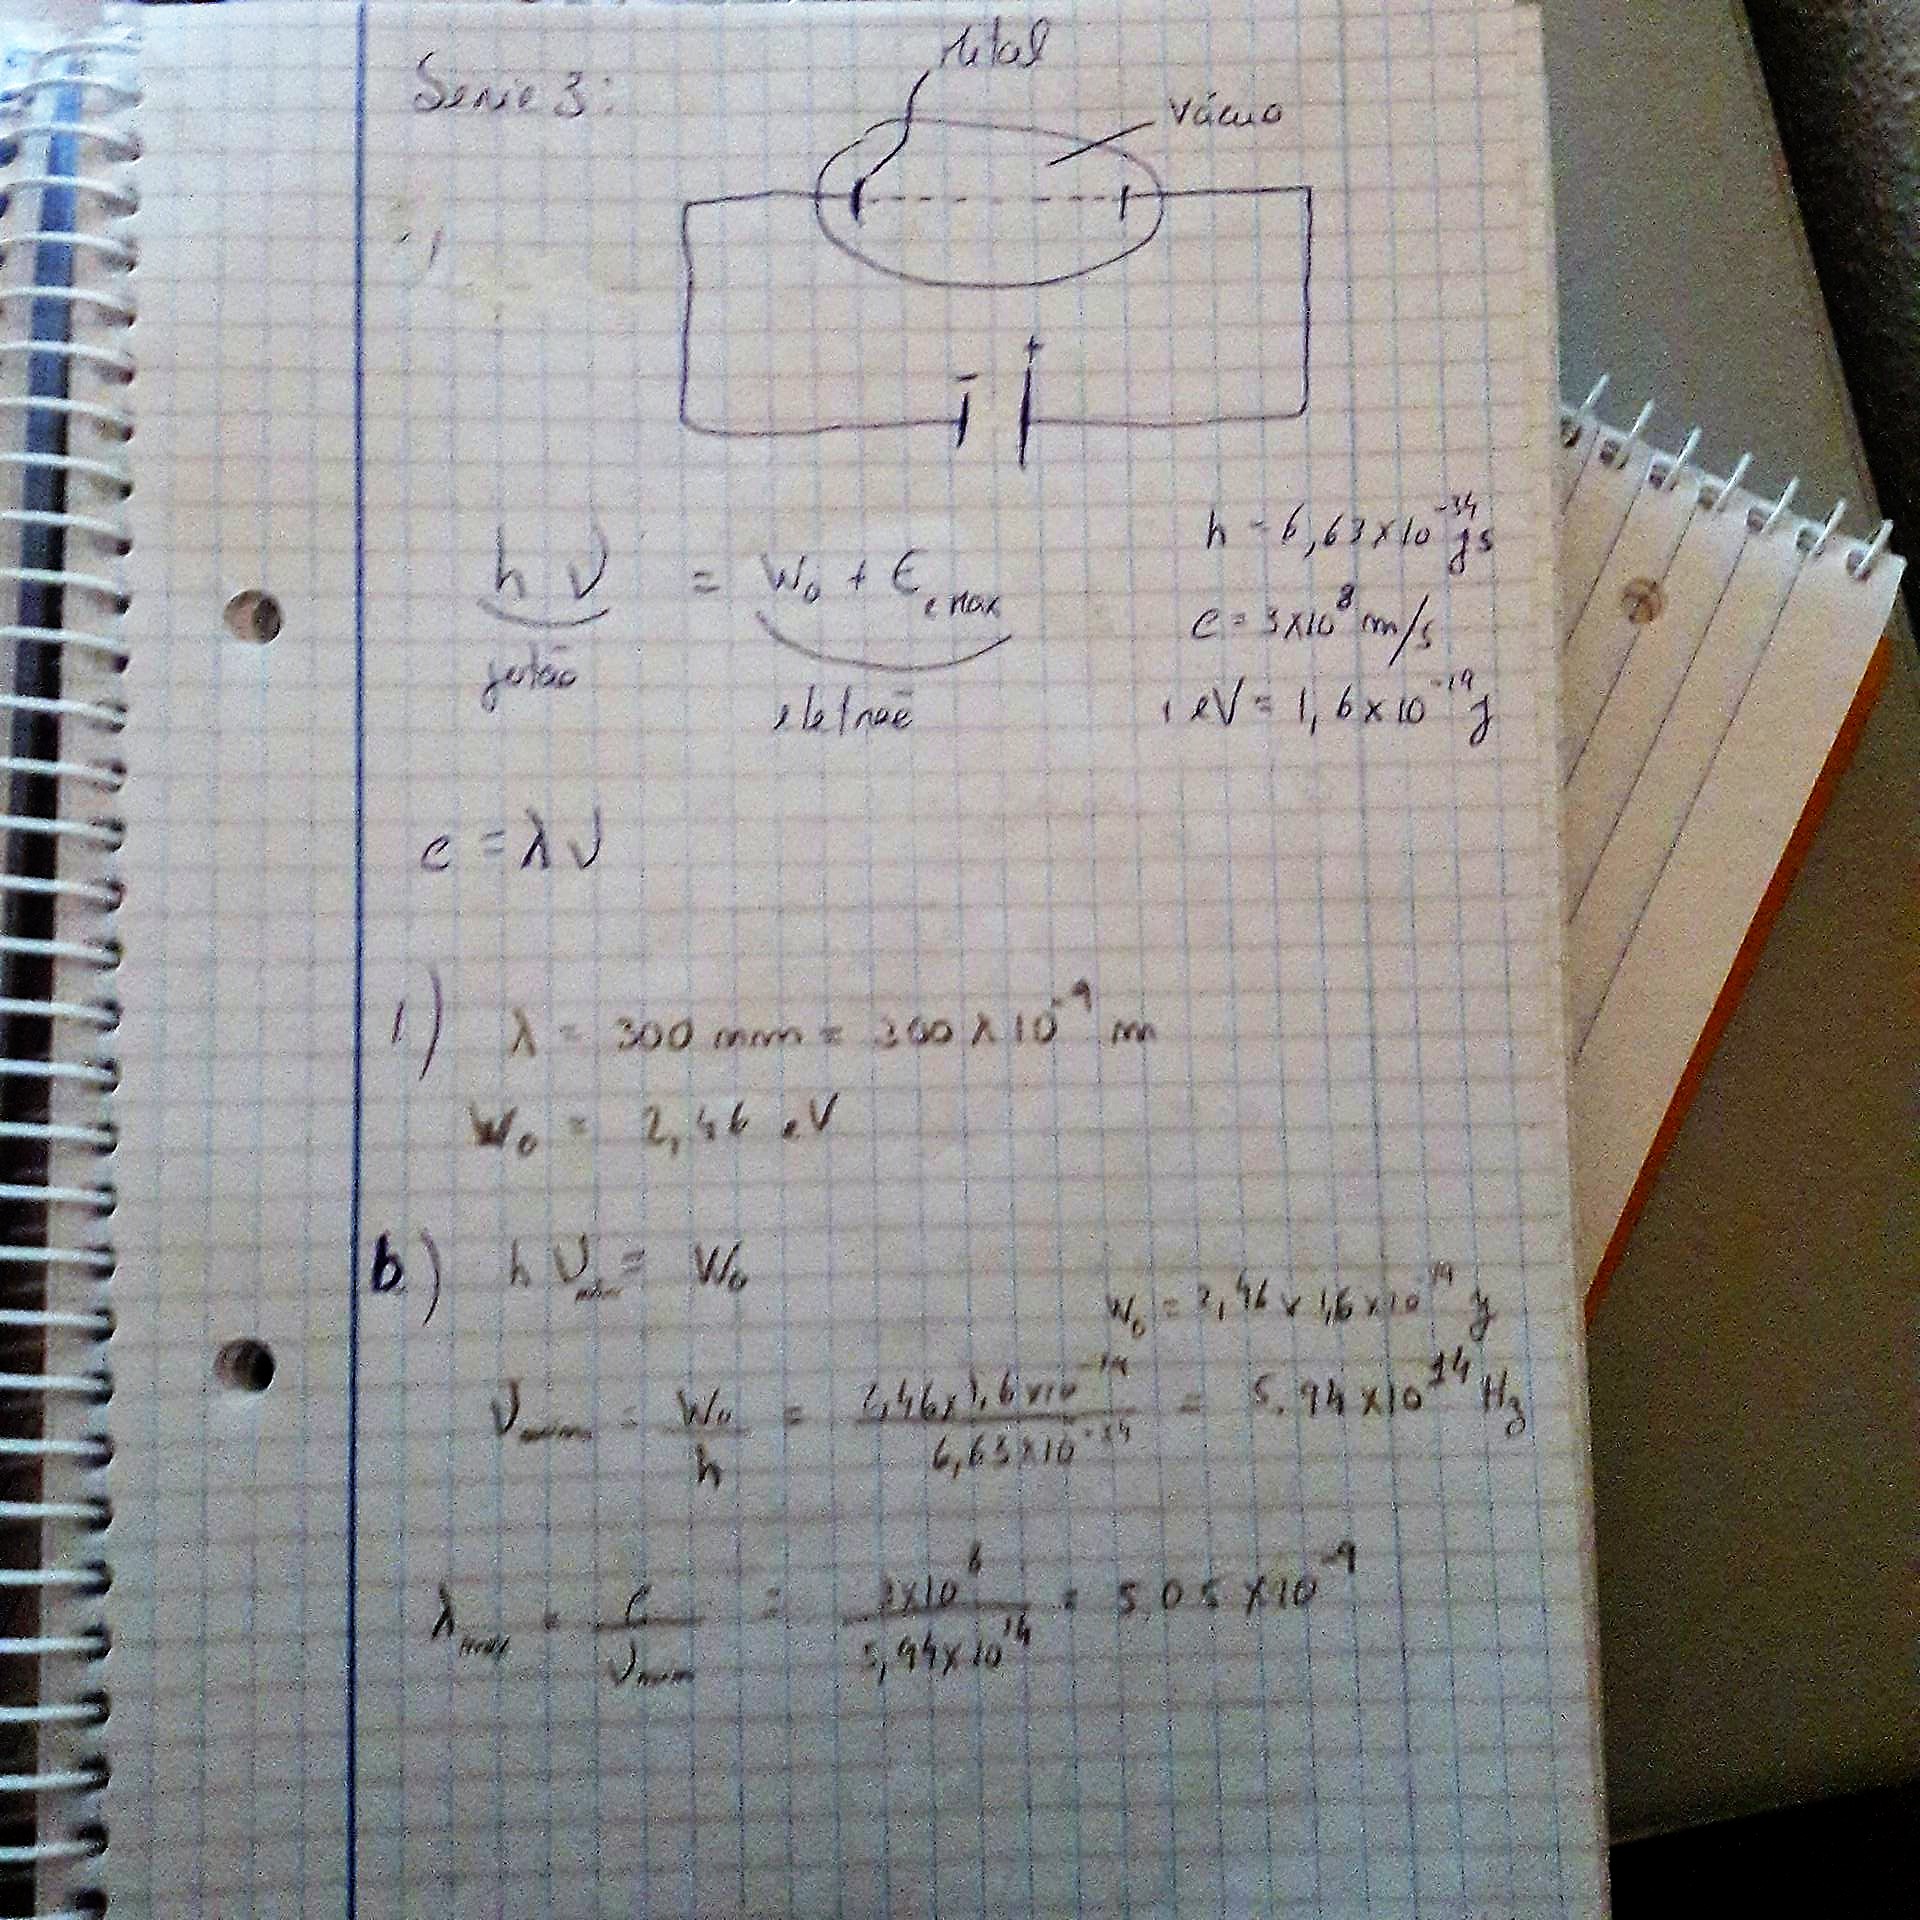 Serie 3:
Metal
Vácuo
- +
h ν = W₀ + E e max
fotão
eletrão
h = 6,63×10⁻³⁴ Js
c = 3×10⁸ m/s
1 eV = 1,6×10⁻¹⁹ J
c = λ ν
1) λ = 300 nm = 300 × 10⁻⁹ m
W₀ = 2,46 eV
b) h ν min = W₀
W₀ = 2,46 × 1,6×10⁻¹⁹ J
ν min = W₀ / h = 2,46×1,6×10⁻¹⁹ / 6,63×10⁻³⁴ = 5.94×10¹⁴ Hz
λ max = c / ν min = 3×10⁸ / 5,94×10¹⁴ = 505 ×10⁻⁹